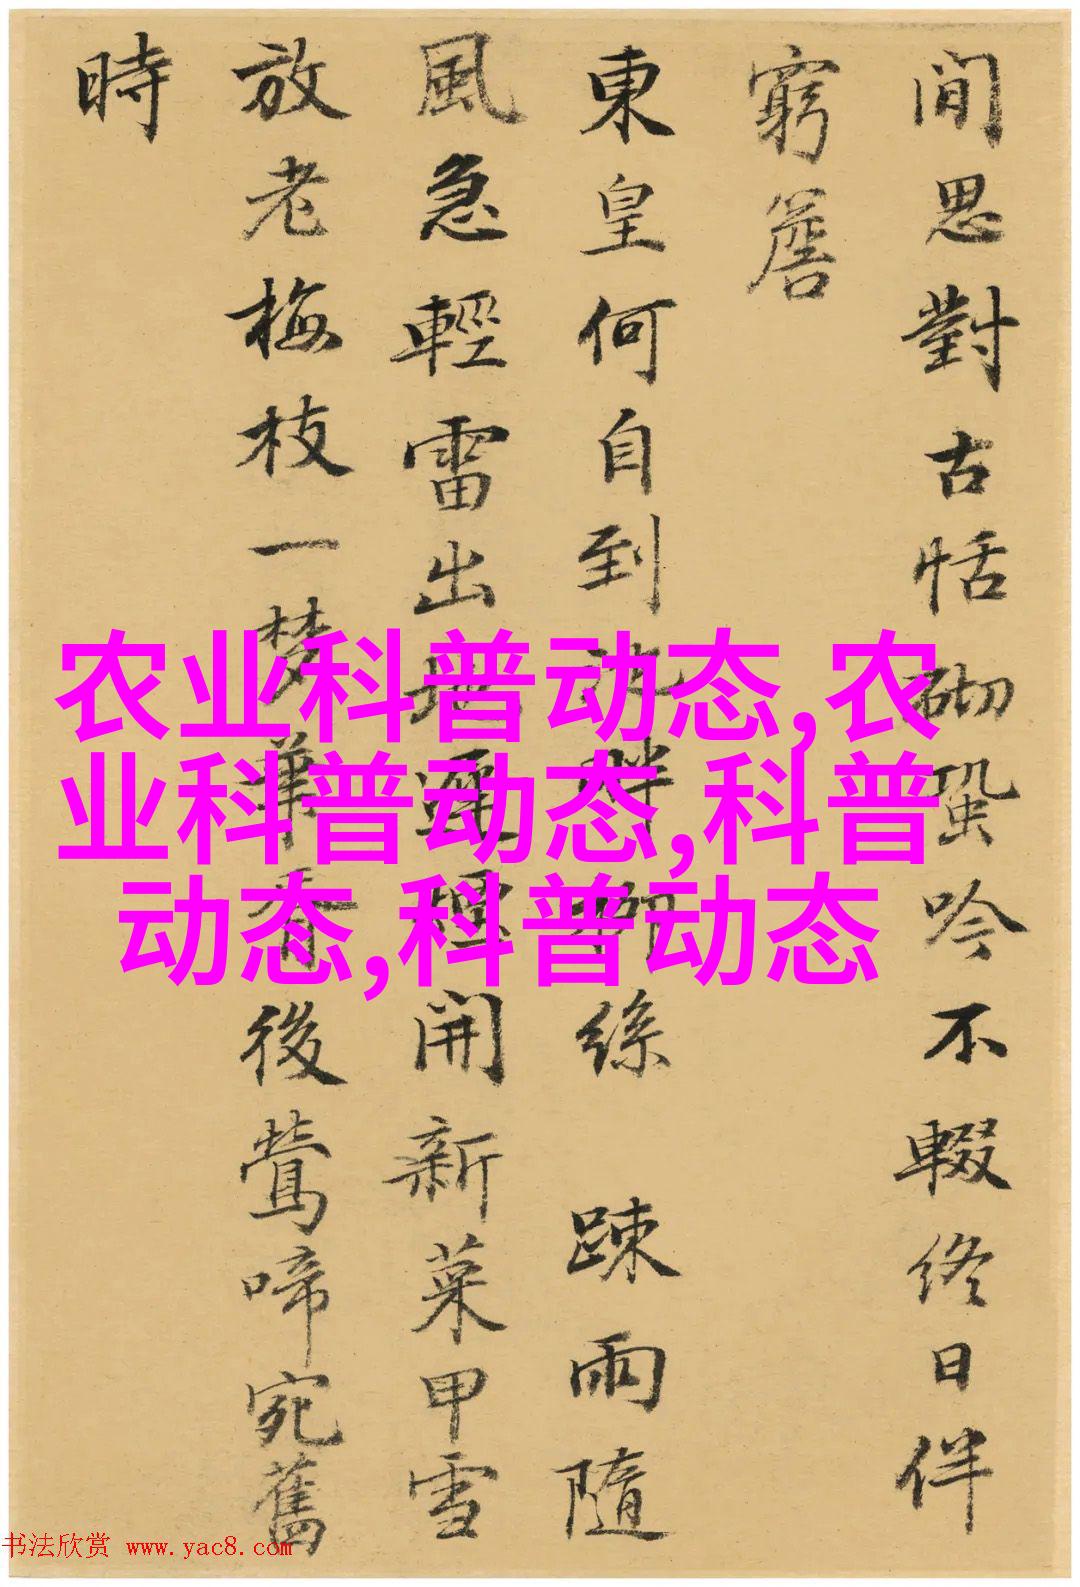 間思對古恬砌蛩吟不輟終日伴
窮簷
東皇何自到池畔柳絲 踈雨隨
風急輕雷出地遲開新菜甲雪
放老梅枝一夢華胥後鶯啼宛舊
時
农业科普动态,农
业科普动态,科普
动态,科普动态
书法欣赏 www.yac8.com